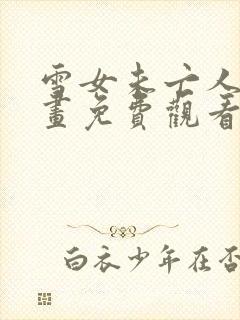 雪女未亡人
畫免費觀看
白衣少年在否